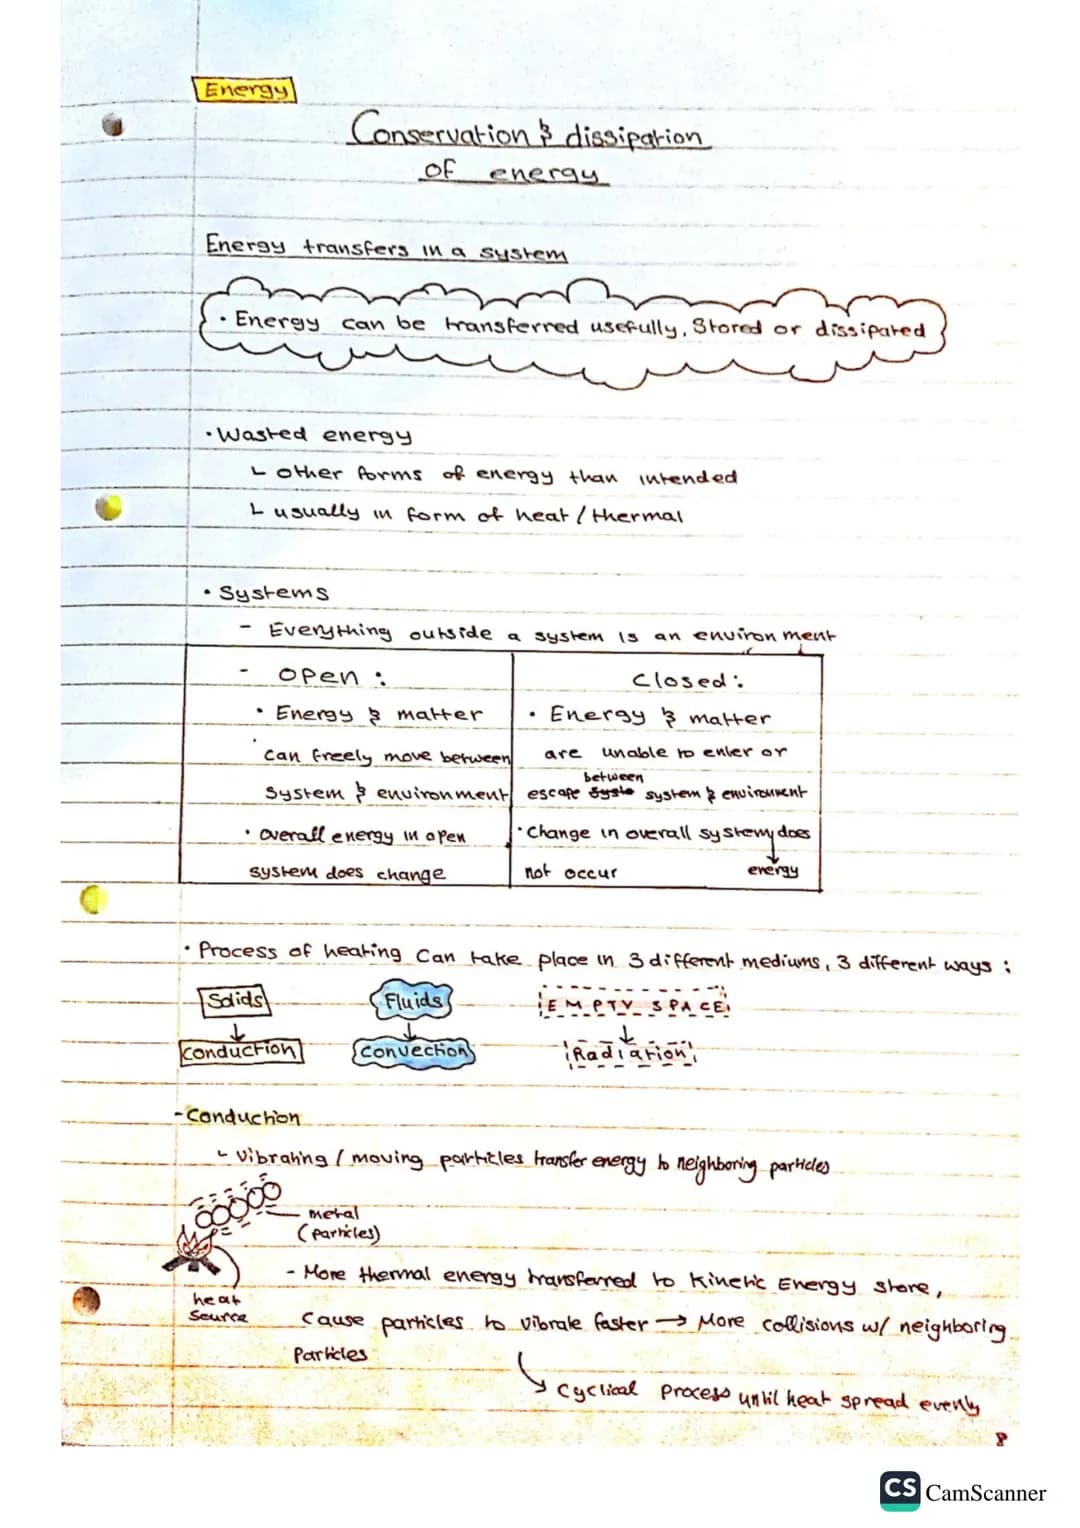 Energy
Conservation & dissipation
of energy
Energy transfers in a system
• Energy can be transferred usefully, Stored or dissipated
• Wasted energy
└ other forms of energy than intended
└ usually in form of heat / thermal
• Systems
- Everything outside a system is an environment
- Open :
• Energy & matter
can freely move between
system & environment
• Overall energy in open
system does change
Closed :
• Energy & matter
are unable to enter or
between
escape syste system & environment
• Change in overall system does
energy
not occur
• Process of heating can take place in 3 different mediums, 3 different ways :
Solids Fluids EMPTY SPACE
conduction convection Radiation
- Conduction
└ Vibrating / moving particles transfer energy to neighboring particles
metal
(particles)
heat
source
- More thermal energy transferred to Kinetic Energy store,
Cause particles to vibrate faster → More collisions w/ neighboring
Particles
Cyclical process until heat spread evenly
8
CS CamScanner